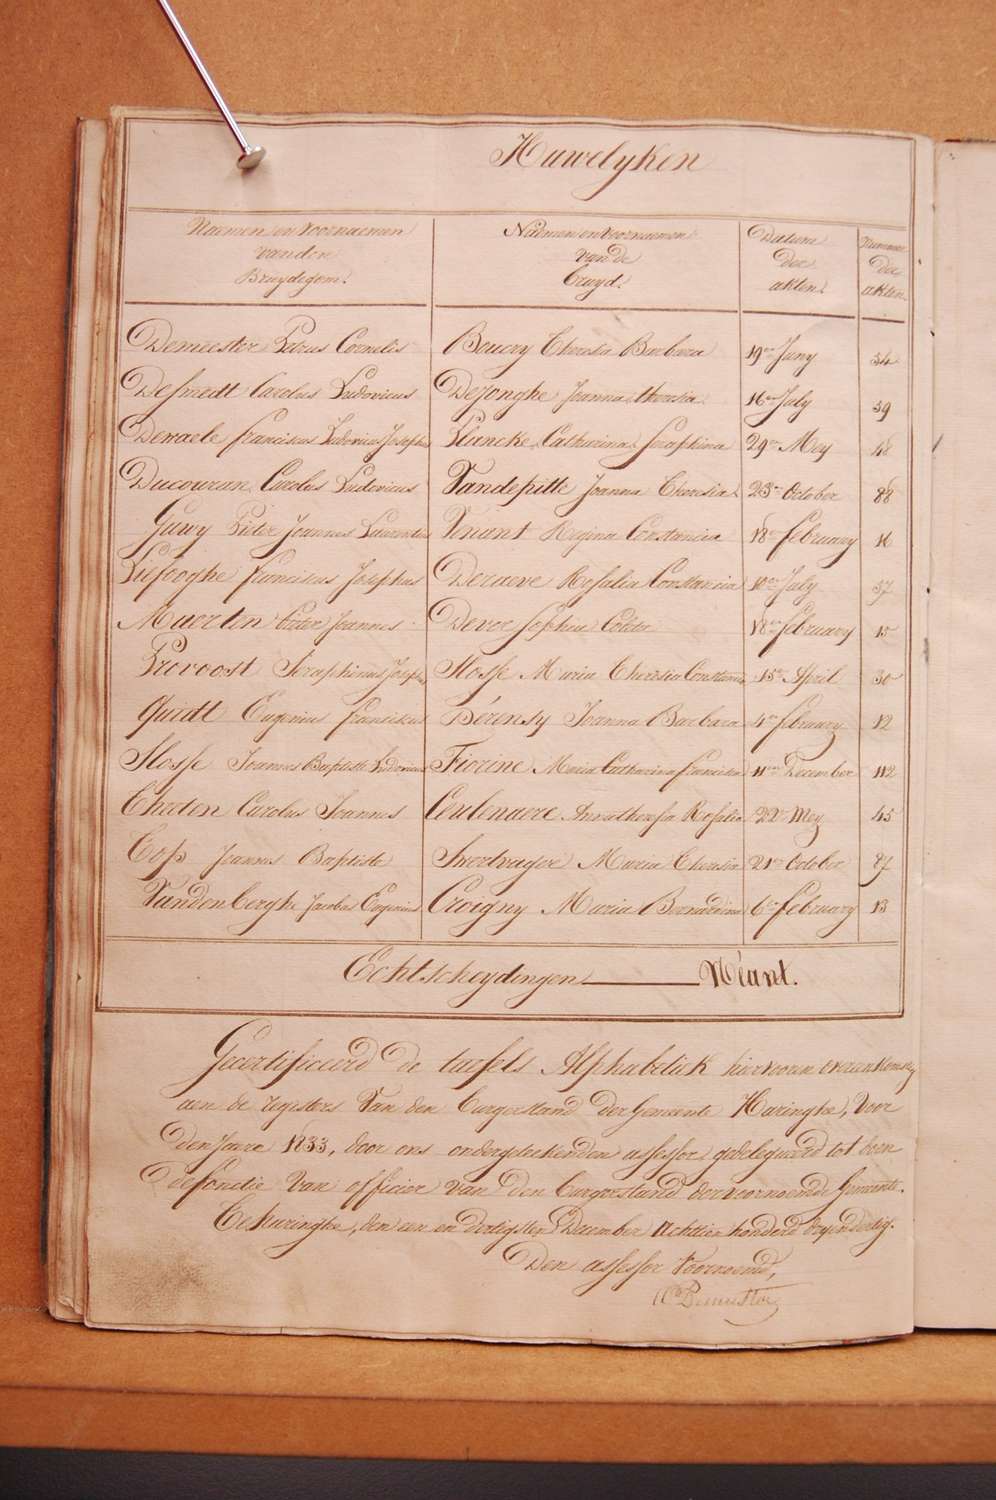 Huwelyken
Naemen en voornaemen van den Bruydegom. | Naemen en voornaemen van de Bruyd. | Datum der akten. | Nummer der akten.
Demeester Petrus Cornelis | Bouery Theresia Barbara | 19en Juny | 54
Desmedt Carolus Ludovicus | Dejonghe Joanna theresia | 16en July | 59
Dewaele franciscus Ludovicus Joseph | Plancke Catharina Seraphina | 29en Mey | 48
Ducouran Carolus Ludovicus | Vandepitte Joanna Theresia | 23en October | 88
Guwy Pieter Joannes Laurentius | Venant Regina Constancia | 18en february | 16
Liefooghe franciscus Josephus | Deraeve Rosalia Constancia | 10en July | 57
Maerten Pieter Joannes | Devos Sophia Coleta | 18en february | 15
Provoost Seraphinus Joseph | Slosse Maria Theresia Constancia | 15en April | 30
Quidt Eugenius franciscus | Bérensy Joanna Barbara | 4en february | 12
Slosse Joannes Baptiste Ludovicus | Fiorine Maria Catharina francisca | 11en December | 112
Cherten Carolus Joannes | Ceulenaere Anna theresia Rosalia | 22en Mey | 45
Top Joannes Baptiste | Swertvager Maria Theresia | 21en October | 87
Vandenberghe Jacobus Eugenius | Croigny Maria Bernardina | 6en february | 13
Echtscheydingen Néant.
Gecertificeerd de taefels Alphabetiek hiervooren overeenkomstig
aen de registers Van den Burgerstand der Gemeente Haringhe, Voor
den Jaere 1833, door ons ondergeteekenden assessor gedelegueerd tot doen
defonctie Van officier van den burgerstand der voornoemde Gemeente.
Te Haringhe, den een en dertigsten December Achttien honderd dryendertig.
Den assessor Voornoemd,